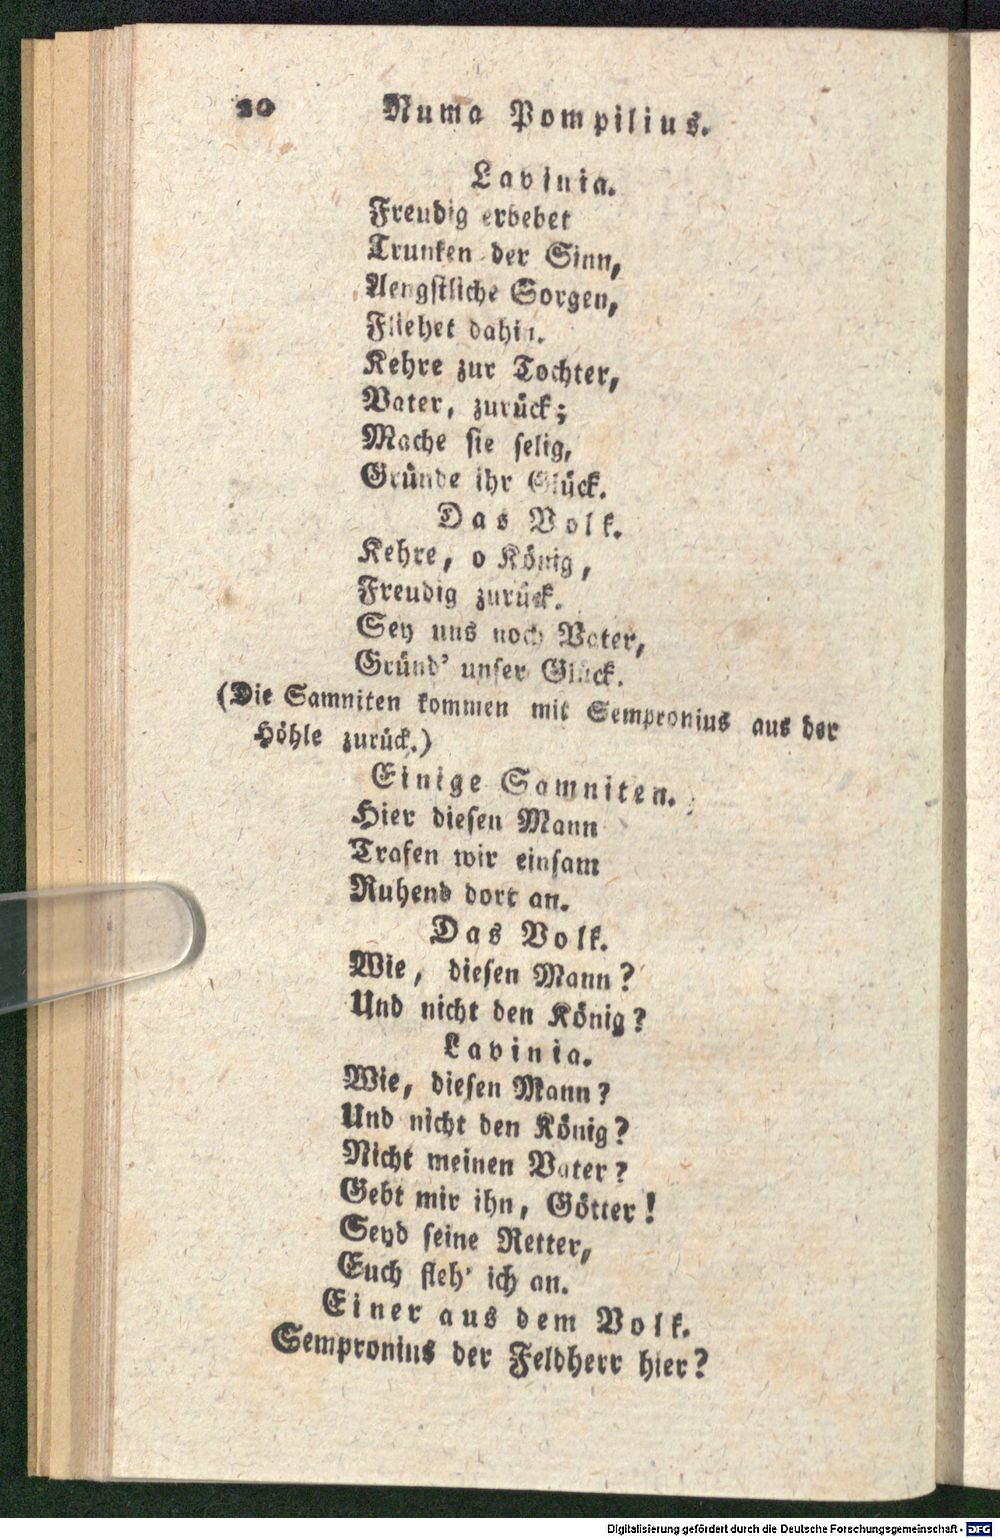 20 Numa Pompilius.
Lavinia.
Freudig erbebet
Trunken der Sinn,
Aengstliche Sorgen,
Fliehet dahin.
Kehre zur Tochter,
Vater, zurück;
Mache sie selig,
Gründe ihr Glück.
Das Volk.
Kehre, o König,
Freudig zurück.
Sey uns noch Vater,
Gründ' unser Glück.
(Die Samniten kommen mit Sempronius aus der
Höhle zurück.)
Einige Samniten.
Hier diesen Mann
Trafen wir einsam
Ruhend dort an.
Das Volk.
Wie, diesen Mann?
Und nicht den König?
Lavinia.
Wie, diesen Mann?
Und nicht den König?
Nicht meinen Vater?
Gebt mir ihn, Götter!
Seyd seine Retter,
Euch fleh' ich an.
Einer aus dem Volk.
Sempronius der Feldherr hier?
Digitalisierung gefördert durch die Deutsche Forschungsgemeinschaft - DFG